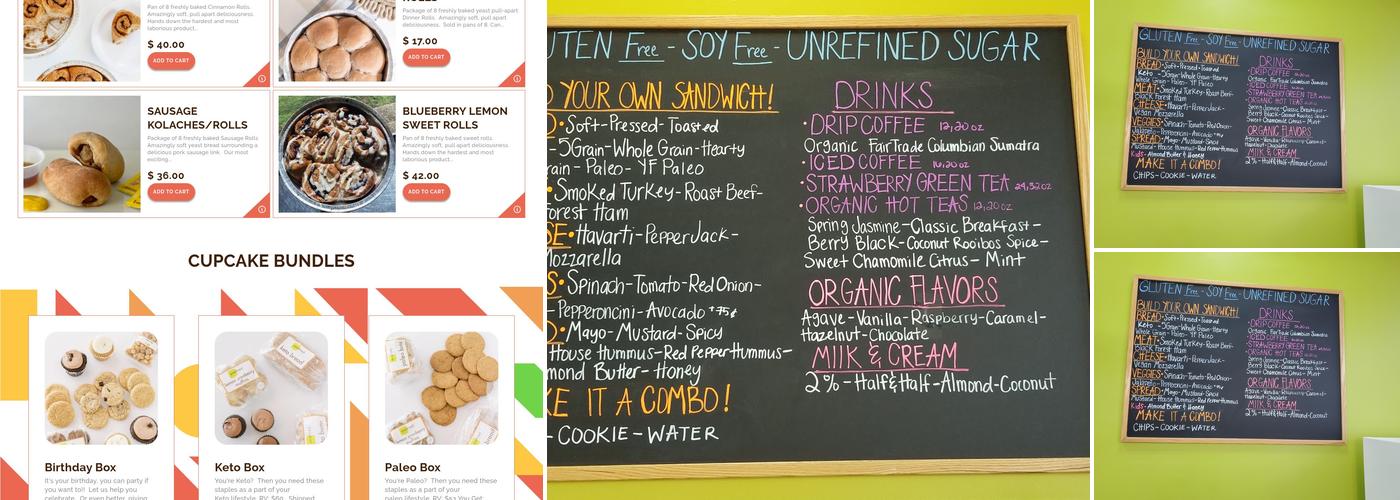 Pan of 8 freshly baked Cinnamon Rolls.
Amazingly soft, pull apart deliciousness.
Hands down the hardest and most
laborious product...
$ 40.00
ADD TO CART
Pan of 8 freshly baked yeast pull-apart
Dinner Rolls. Amazingly soft, pull apart
deliciousness. Sold in pans of 8. Can...
$ 17.00
ADD TO CART
SAUSAGE
KOLACHES/ROLLS
Package of 8 freshly baked Sausage Rolls
Amazingly soft yeast bread surrounding a
delicious pork sausage link. Our most
exciting...
$ 36.00
ADD TO CART
BLUEBERRY LEMON
SWEET ROLLS
Pan of 8 freshly baked sweet rolls.
Amazingly soft, pull apart deliciousness.
Hands down the hardest and most
laborious product...
$ 42.00
ADD TO CART
CUPCAKE BUNDLES
Birthday Box
It's your birthday, you can party if
you want to!! Let us help you
celebrate. Or even better, giving
Keto Box
You're Keto? Then you need these
staples as a part of your
Keto lifestyle. RV: $60. Shipped
Paleo Box
You're Paleo? Then you need these
staples as a part of your
paleo lifestyle. RV: $53 You Get
UTEN Free - SOY Free - UNREFINED SUGAR
YOUR OWN SANDWICH!
Soft-Pressed-Toasted
- 5Grain-Whole Grain-Hearty
rain - Paleo - YF Paleo
Smoked Turkey-Roast Beef-
Forest Ham
SE•Havarti-PepperJack-
Mozzarella
S•Spinach-Tomato-Red Onion-
- Pepperoncini-Avocado +75¢
Mayo-Mustard-Spicy
House Hummus-Red Pepper Hummus-
mond Butter-Honey
KE IT A COMBO!
- COOKIE-WATER
DRINKS
•DRIP COFFEE 12,20 oz
Organic FairTrade Columbian Sumatra
•ICED COFFEE 16,20 oz
•STRAWBERRY GREEN TEA 24,32 oz
•ORGANIC HOT TEAS 12,20 oz
Spring Jasmine-Classic Breakfast-
Berry Black-Coconut Rooibos Spice-
Sweet Chamomile Citrus-Mint
ORGANIC FLAVORS
Agave-Vanilla-Raspberry-Caramel-
Hazelnut-Chocolate
MIlK & CREAM
2%-Half&Half-Almond-Coconut
GLUTEN Free - SOY Free - UNREFINED SUGAR
BUILD YOUR OWN SANDWICH!
BREAD•Soft-Pressed-Toasted
Keto -5Grain-Whole Grain-Hearty
Whole Grain-Paleo-YF Paleo
MEAT•Smoked Turkey-Roast Beef-
Black Forest Ham
CHEESE•Havarti-PepperJack-
Vegan Mozzarella
VEGGIES•Spinach-Tomato-Red Onion-
Jalapeño-Pepperoncini-Avocado +75¢
SPREAD•Mayo-Mustard-Spicy
Mustard-House Hummus-Red Pepper Hummus
Kids-Almond Butter & Honey
MAKE IT A COMBO!
CHIPS-COOKIE-WATER
DRINKS
•DRIP COFFEE
Organic FairTrade Columbian Sumatra
•ICED COFFEE
•STRAWBERRY GREEN TEA
•ORGANIC HOT TEAS
Spring Jasmine-Classic Breakfast-
Berry Black-Coconut Rooibos Spice-
Sweet Chamomile Citrus-Mint
ORGANIC FLAVORS
Agave-Vanilla-Raspberry-Caramel-
Hazelnut-Chocolate
MIlK & CREAM
2%-Half&Half-Almond-Coconut
GLUTEN Free - SOY Free - UNREFINED SUGAR
BUILD YOUR OWN SANDWICH!
BREAD•Soft-Pressed-Toasted
Keto -5Grain-Whole Grain-Hearty
Whole Grain-Paleo-YF Paleo
MEAT•Smoked Turkey-Roast Beef-
Black Forest Ham
CHEESE•Havarti-PepperJack-
Vegan Mozzarella
VEGGIES•Spinach-Tomato-Red Onion-
Jalapeño-Pepperoncini-Avocado +75¢
SPREAD•Mayo-Mustard-Spicy
Mustard-House Hummus-Red Pepper Hummus
Kids-Almond Butter & Honey
MAKE IT A COMBO!
CHIPS-COOKIE-WATER
DRINKS
•DRIP COFFEE
Organic FairTrade Columbian Sumatra
•ICED COFFEE
•STRAWBERRY GREEN TEA
•ORGANIC HOT TEAS
Spring Jasmine-Classic Breakfast-
Berry Black-Coconut Rooibos Spice-
Sweet Chamomile Citrus-Mint
ORGANIC FLAVORS
Agave-Vanilla-Raspberry-Caramel-
Hazelnut-Chocolate
MIlK & CREAM
2%-Half&Half-Almond-Coconut